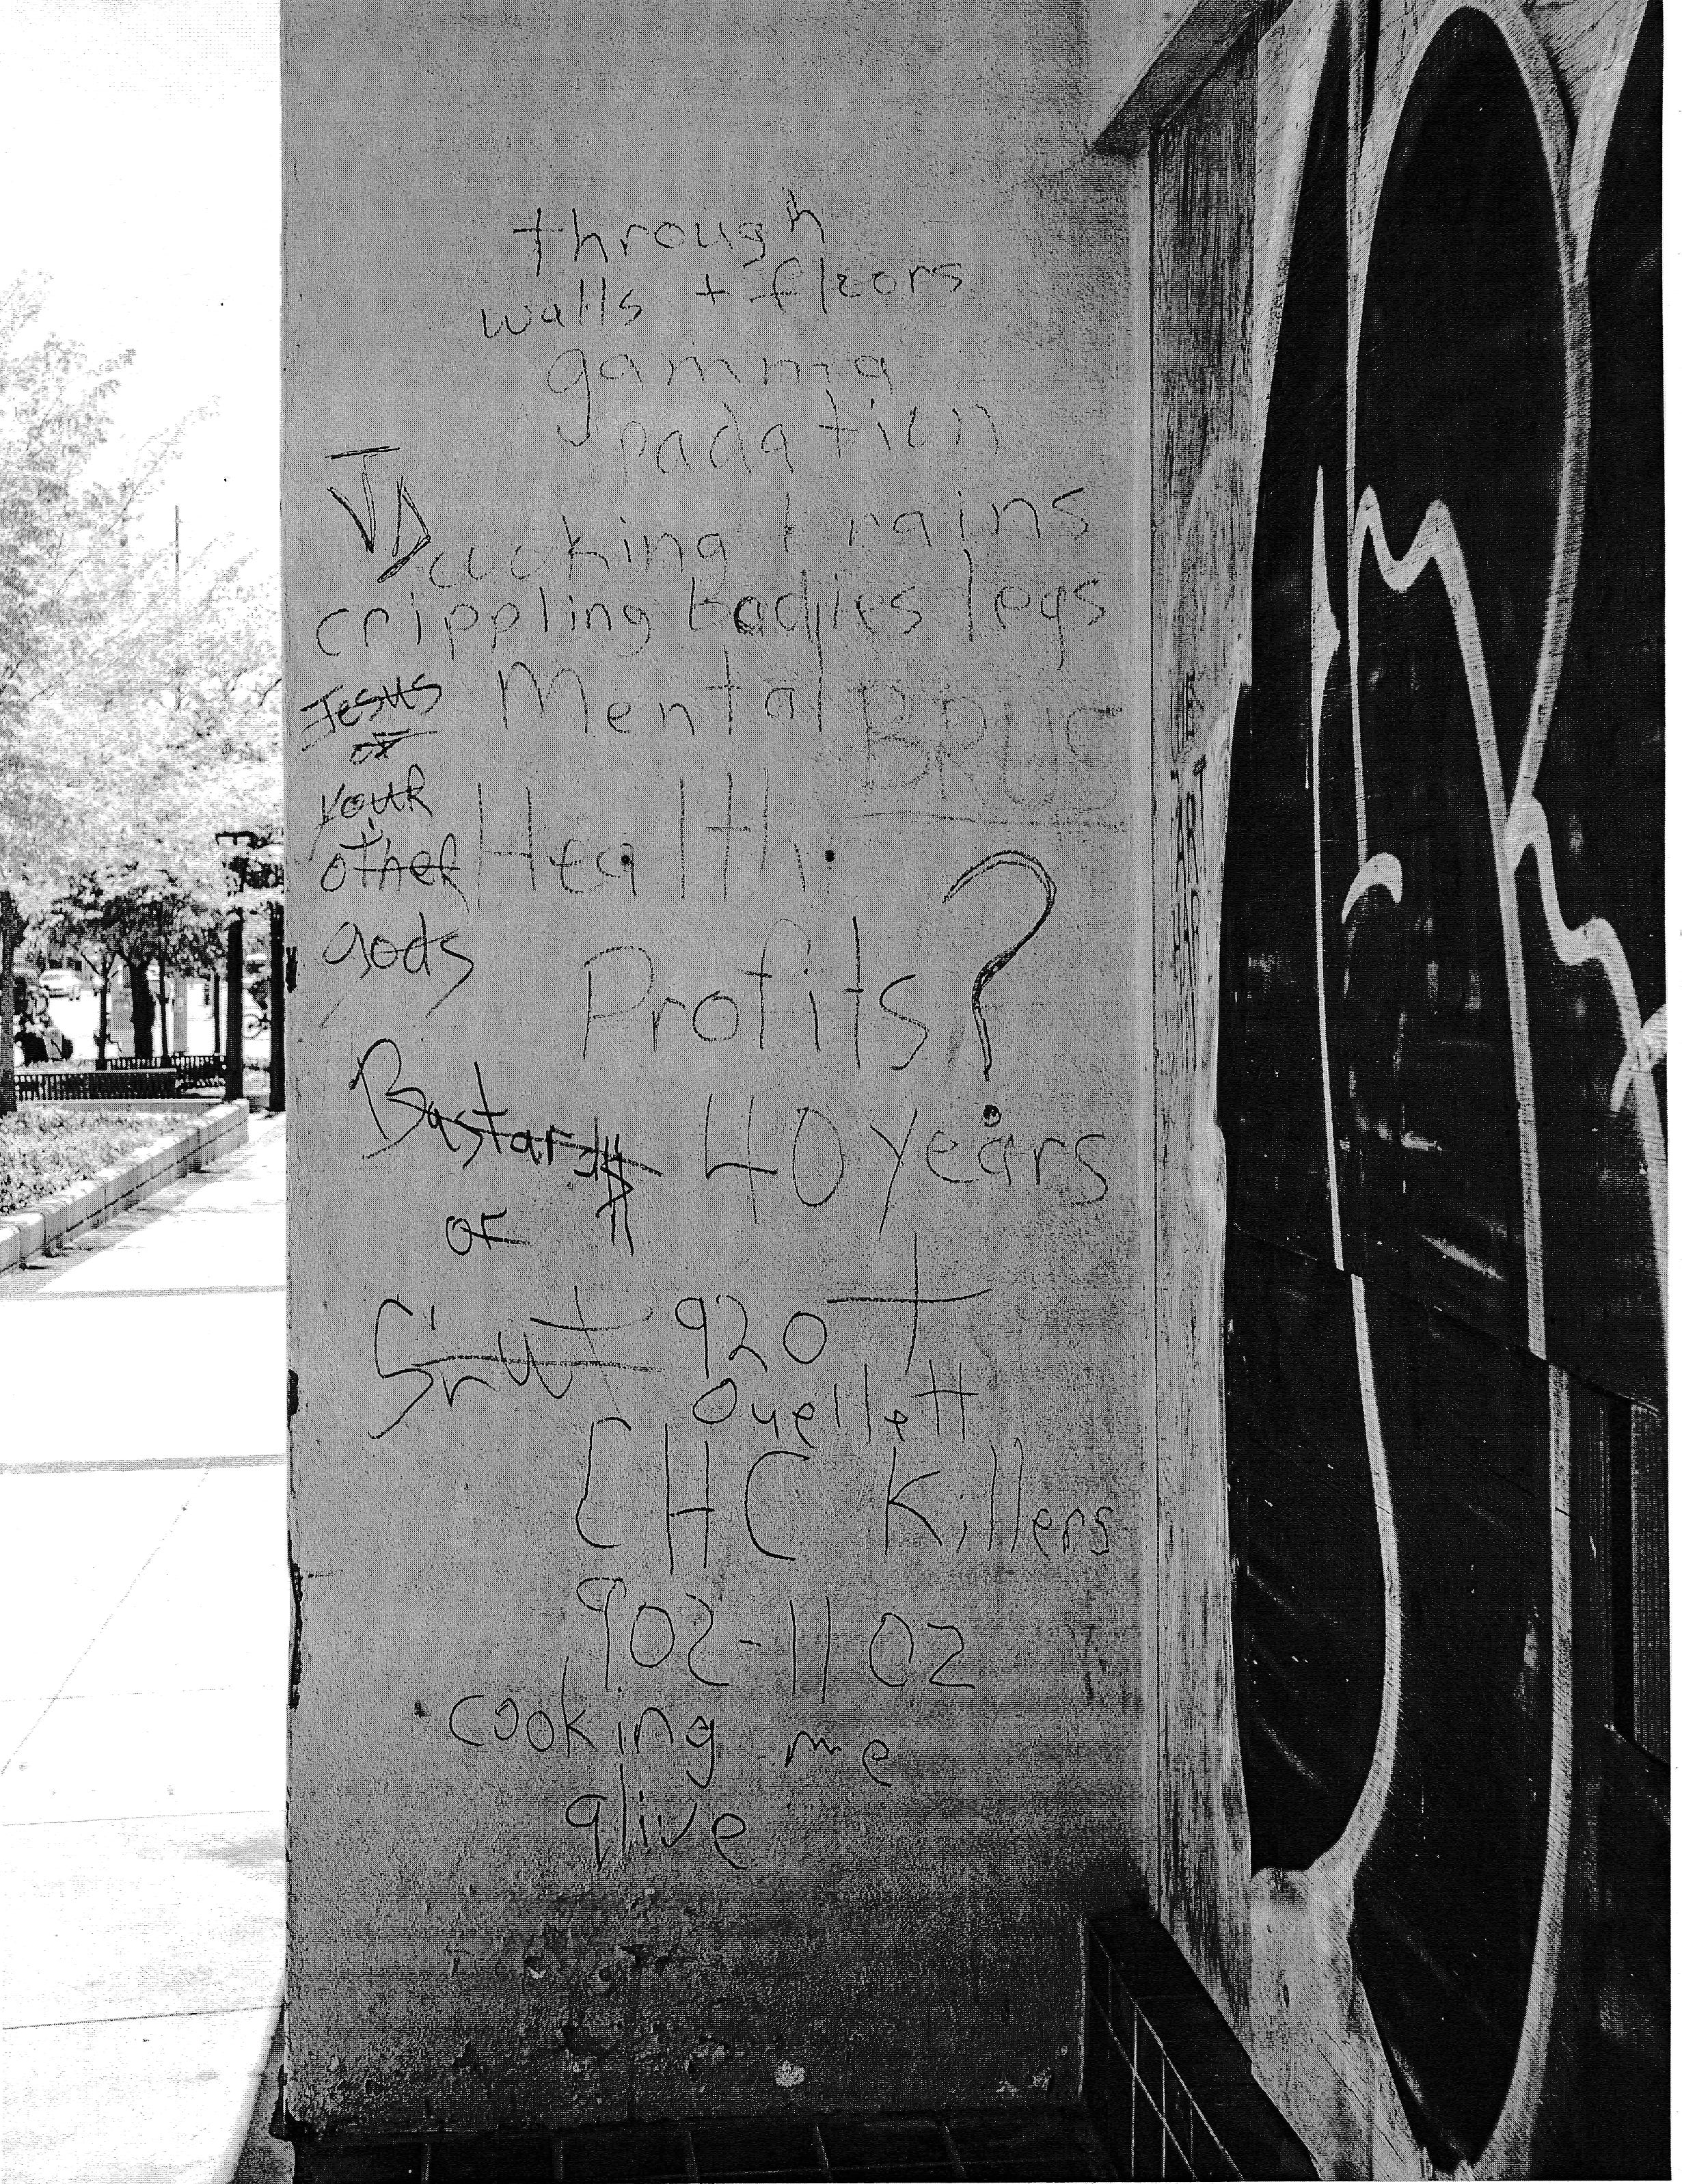 through
walls + floors
gamma
radation
cooking brains
crippling bodies legs
Mental
BRUS
Health
Profits?
40 years
920
Ouellett
CHC Killers
902-1102
cooking me
alive
Jesus
or
your
other
gods
Bastards
or